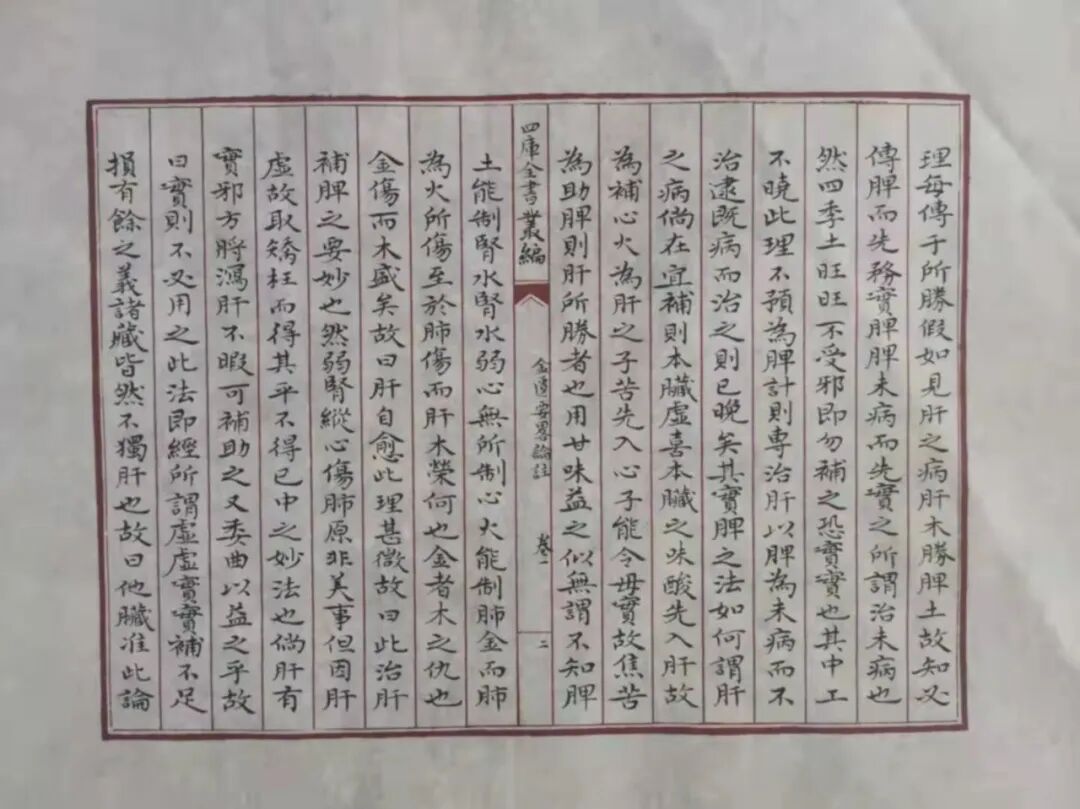 理每傳于所勝假如見肝之病肝木勝脾土故知必
傳脾而先務實脾脾未病而先實之所謂治未病也
然四季土旺旺不受邪即勿補之恐實實也其中工
不曉此理不預為脾計則專治肝以脾為未病而不
治逮既病而治之則已晚矣其實脾之法如何謂肝
之病倘在宜補則本臟虛喜本臟之味酸先入肝故
為補心火為肝之子苦先入心子能令母實故焦苦
為助脾則肝所勝者也用甘味益之似無謂不知脾
四庫全書叢編
金匱要畧論註
卷一
二
土能制腎水腎水弱心無所制心火能制肺金而肺
為火所傷至於肺傷而肝木榮何也金者木之仇也
金傷而木盛矣故曰肝自愈此理甚微故曰此治肝
補脾之要妙也然弱腎縱心傷肺原非美事但因肝
虛故取矯枉而得其平不得已中之妙法也倘肝有
實邪方將瀉肝不暇可補助之又委曲以益之乎故
曰實則不必用之此法即經所謂虛虛實實補不足
損有餘之義諸臟皆然不獨肝也故曰他臟准此論